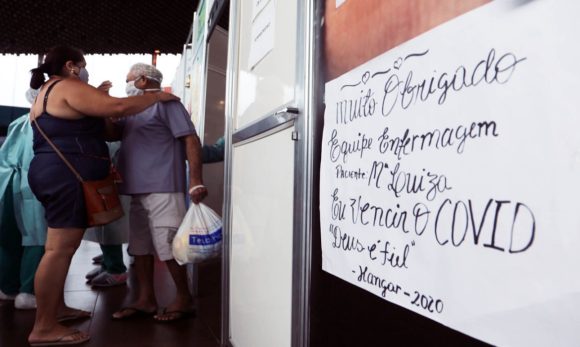 muito Obrigado
Equipe Enfermagem
Paciente Mª Luiza
Eu Vencir O COVID
"Deus é fiel"
- Hangar - 2020